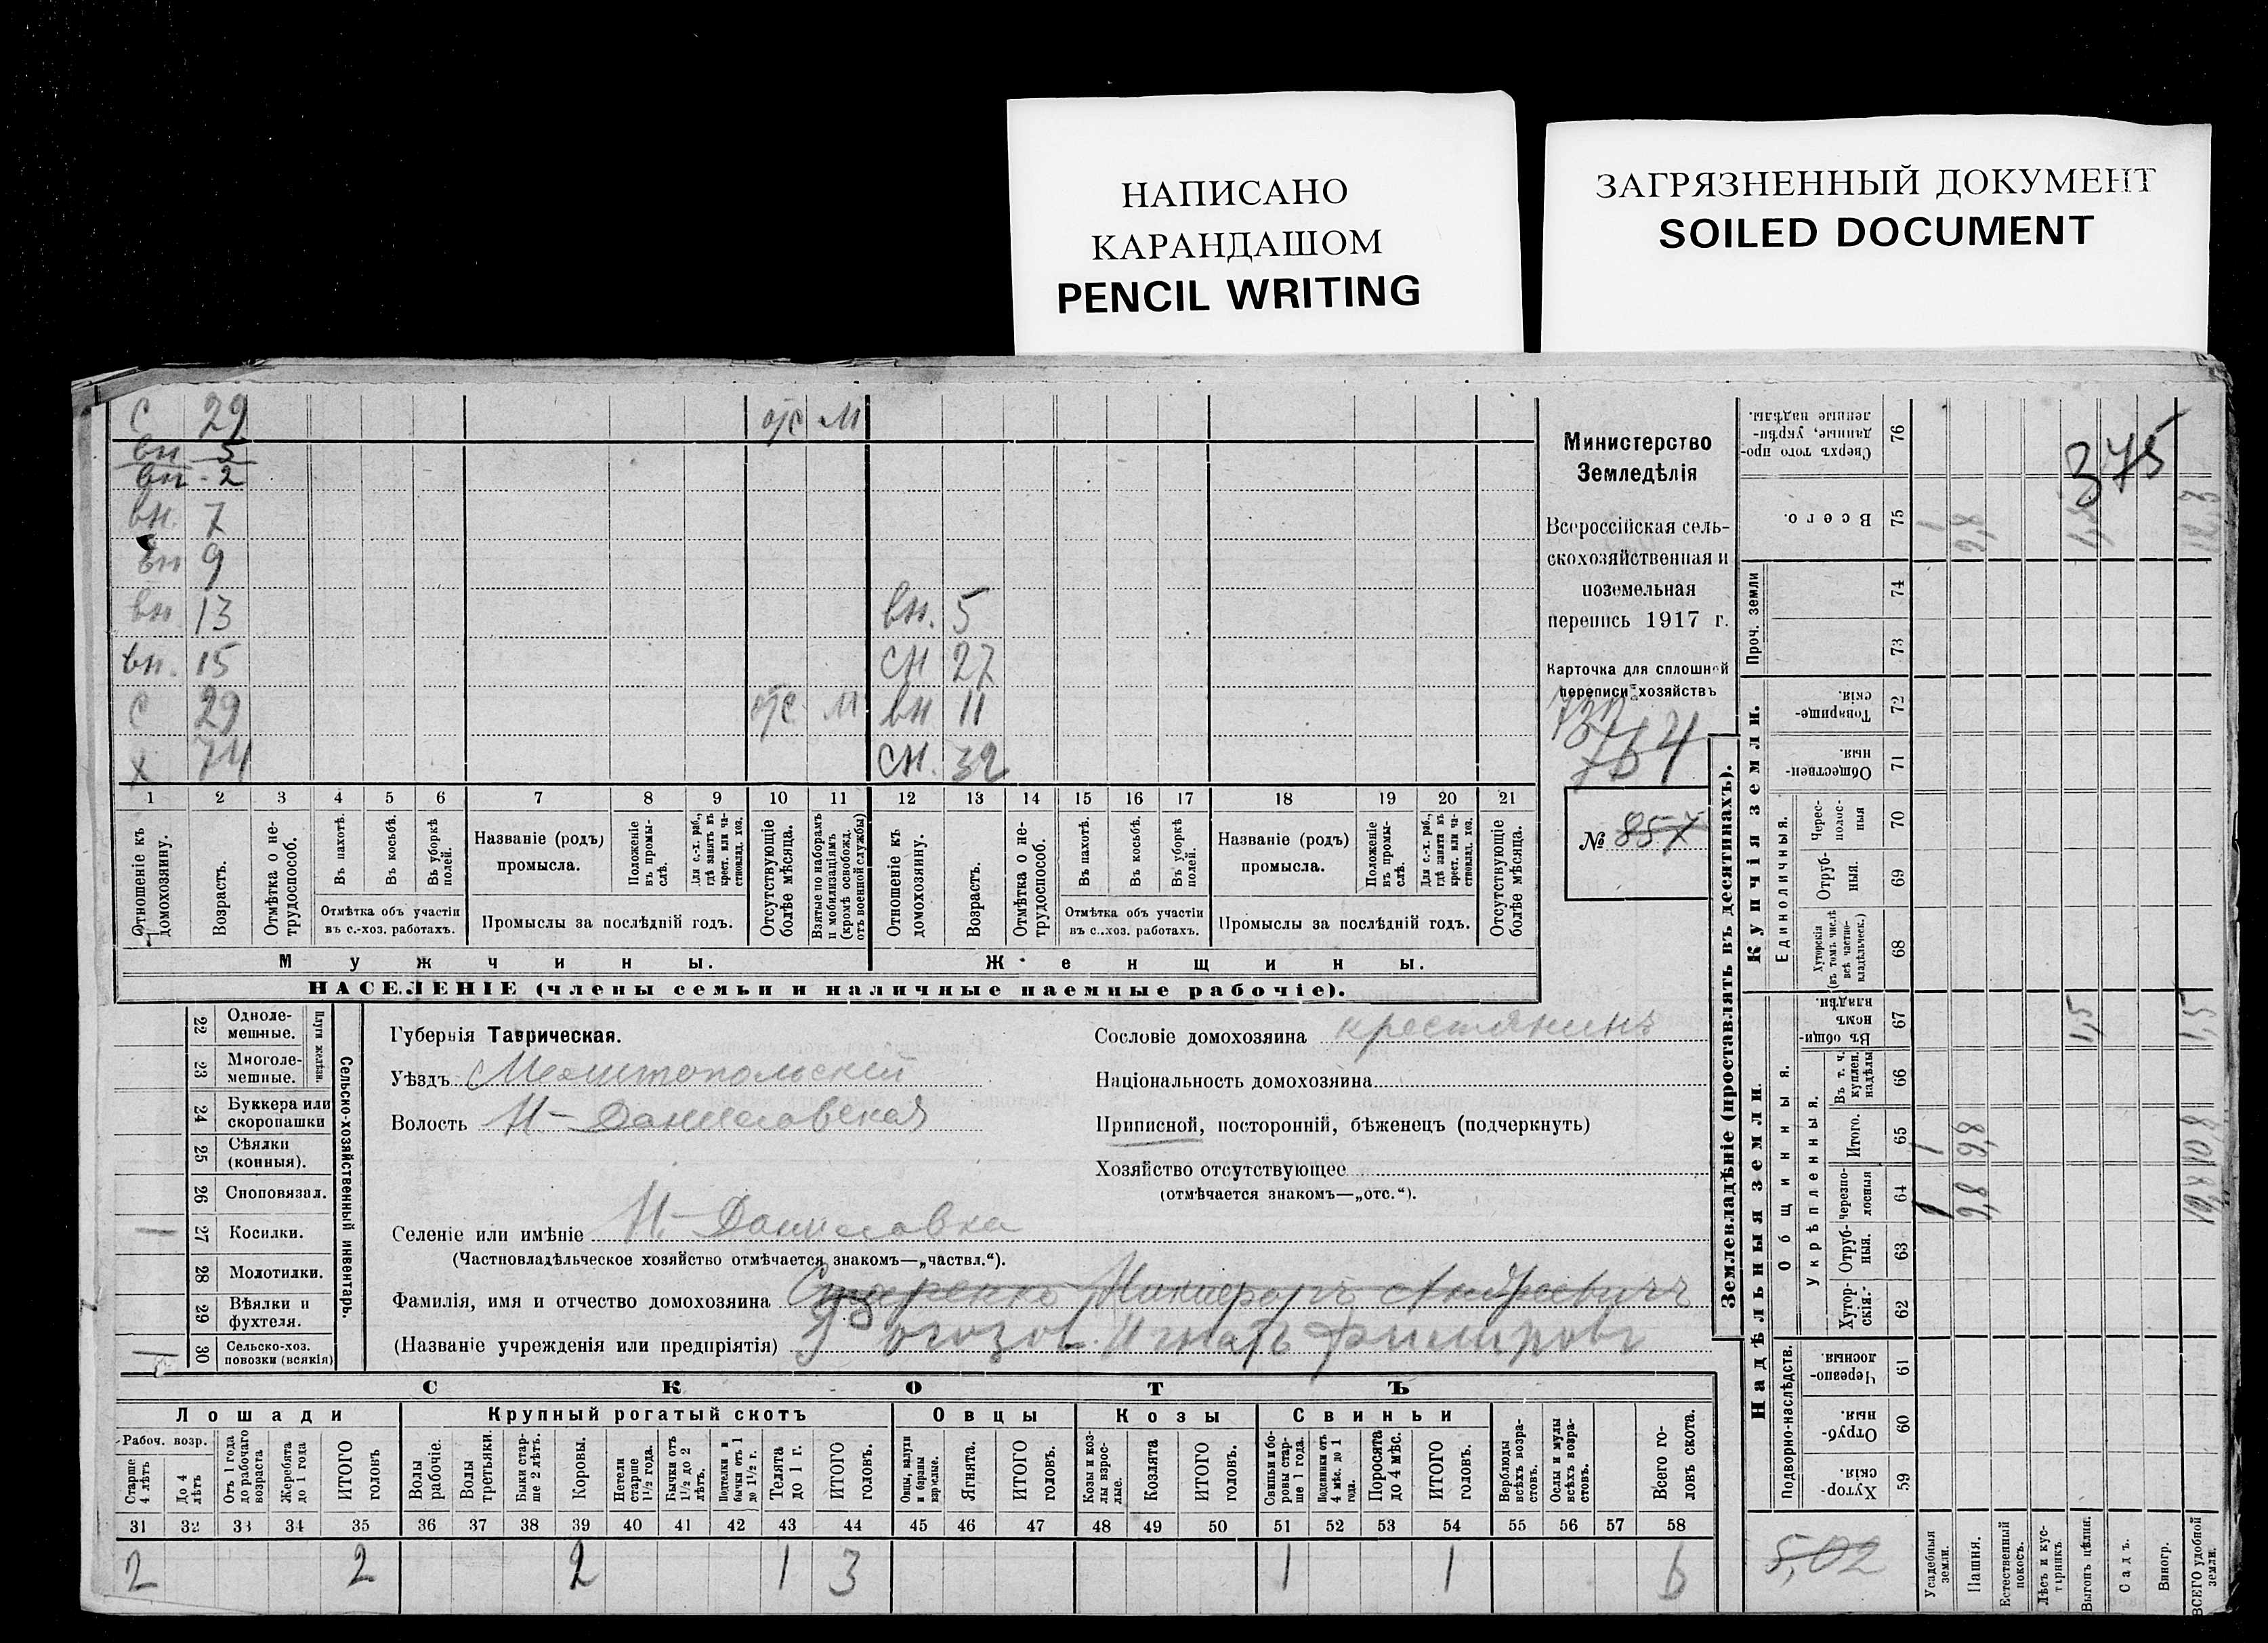 НАПИСАНО
КАРАНДАШОМ
PENCIL WRITING
ЗАГРЯЗНЕННЫЙ ДОКУМЕНТ
SOILED DOCUMENT
С 29 отс М
вн 5
вн. 2
вн. 7
вн 9
вн. 13 вн. 5
вн. 15 сн 27
С 29 отс М вн 11
х 74 сн. 32
1 2 3 4 5 6 7 8 9 10 11 12 13 14 15 16 17 18 19 20 21
Отношеніе къ домохозяину.
Возрастъ.
Отмѣтка о нетрудоспособ.
Въ пахотѣ.
Въ косьбѣ.
Въ уборкѣ полей.
Отмѣтка объ участіи въ с.-хоз. работахъ.
Названіе (родъ) промысла.
Положеніе въ промыслѣ.
Для с.-х. раб., гдѣ занятъ въ крест. или частновлад. хоз.
Промыслы за послѣдній годъ.
Отсутствующіе болѣе мѣсяца.
Взятые по наборамъ и мобилизаціямъ (кромѣ освобожд. отъ военной службы)
Отношеніе къ домохозяину.
Возрастъ.
Отмѣтка о нетрудоспособ.
Въ пахотѣ.
Въ косьбѣ.
Въ уборкѣ полей.
Отмѣтка объ участіи въ с.-хоз. работахъ.
Названіе (родъ) промысла.
Положеніе въ промыслѣ.
Для с.-х. раб., гдѣ занята въ крест. или частновлад. хоз.
Промыслы за послѣдній годъ.
Отсутствующіе болѣе мѣсяца.
Мужчины.
Женщины.
НАСЕЛЕНІЕ (члены семьи и наличные наемные рабочіе).
Министерство
Земледѣлія
Всероссійская сель-
скохозяйственная и
поземельная
перепись 1917 г.
Карточка для сплошной
переписи хозяйствъ
764
№ 857
22 Одноле-
мешные.
23 Многоле-
мешные.
Плуги желѣзн.
24 Буккера или
скоропашки
25 Сѣялки
(конныя).
26 Сноповязал.
27 Косилки.
28 Молотилки.
29 Вѣялки и
фухтеля.
30 Сельско-хоз.
повозки (всякія)
Сельско-хозяйственный инвентарь.
Губернія Таврическая.
Уѣздъ Мелитопольскій
Волость Н-Даниловская
Селеніе или имѣніе Н-Даниловка
(Частновладѣльческое хозяйство отмѣчается знакомъ—„частвл.“).
Фамилія, имя и отчество домохозяина Никифоръ Андреевичъ
(Названіе учрежденія или предпріятія) Игнатъ
Сословіе домохозяина крестянинъ
Національность домохозяина
Приписной, посторонній, бѣженецъ (подчеркнуть)
Хозяйство отсутствующее
(отмѣчается знакомъ—„отс.“).
СКОТЪ
Лошади
Крупный рогатый скотъ
Овцы
Козы
Свиньи
Рабоч. возр.
Старше 4 лѣтъ
До 4 лѣтъ
Отъ 1 года до рабочаго возраста
Жеребята до 1 года
ИТОГО головъ
Волы рабочіе.
Волы третьяки.
Быки старше 2 лѣтъ.
Коровы.
Нетели старше 1½ года.
Бычки отъ 1½ до 2 лѣтъ.
Подтелки и бычки отъ 1 до 1½ г.
Телята до 1 г.
ИТОГО головъ.
Овцы, валухи и бараны взрослые.
Ягнята.
ИТОГО головъ.
Козы и козлы взрослые.
Козлята
ИТОГО головъ.
Свиньи и боровы старше 1 года.
Подсвинки отъ 4 мѣс. до 1 года.
Поросята до 4 мѣс.
ИТОГО головъ.
Верблюды всѣхъ возрастовъ.
Ослы и мулы всѣхъ возрастовъ.
Всего головъ скота.
31 32 33 34 35 36 37 38 39 40 41 42 43 44 45 46 47 48 49 50 51 52 53 54 55 56 57 58
2 2 2 1 3 1 1 6
Землевладѣніе (проставлять въ десятинахъ).
Надѣльныя земли
Купчія земли.
Проч. земли
Подворно-наслѣдств.
Общинныя.
Укрѣпленныя.
Единоличныя.
Сверхъ того проданные, укрѣпленные надѣлы. 76
Всего. 75
74
73
Товарищескія. 72
Общественныя. 71
Черезполосныя 70
Отрубныя. 69
Хуторскія (въ томъ числѣ всѣ частновладѣльческ.) 68
Въ общинномъ владѣн. 67
Въ т. ч. куплен. надѣлы 66
Итого. 65
Черезполосныя 64
Отрубныя. 63
Хуторскія. 62
Черезполосныя 61
Отрубныя. 60
Хуторскія 59
375
1 6,8 1,5
1,5
1 6,8
1 6,8
5,02
Усадебныя земли.
Пашня.
Естественный покосъ.
Лѣсъ и кустарникъ.
Выгонъ цѣлин.
Садъ.
Виногр.
ВСЕГО удобной земли.